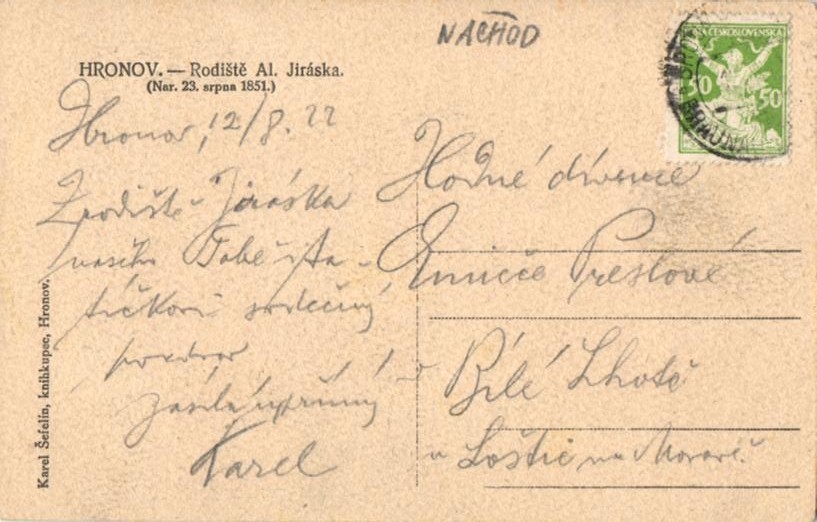 NÁCHOD
HRONOV. — Rodiště Al. Jiráska.
(Nar. 23. srpna 1851.)
POŠTA ČESKOSLOVENSKÁ
50 50
BRAUNA
Hronov, 12/8. 22
Z rodiště Jiráska
našeho Tobě i ta-
tíčkovi srdečný
pozdrav
zasílá upřímný
Karel
Hodné dívence
Emičce Preslové
Bílé Lhotě
u Loštic na Moravě.
Karel Šefelín, knihkupec, Hronov.